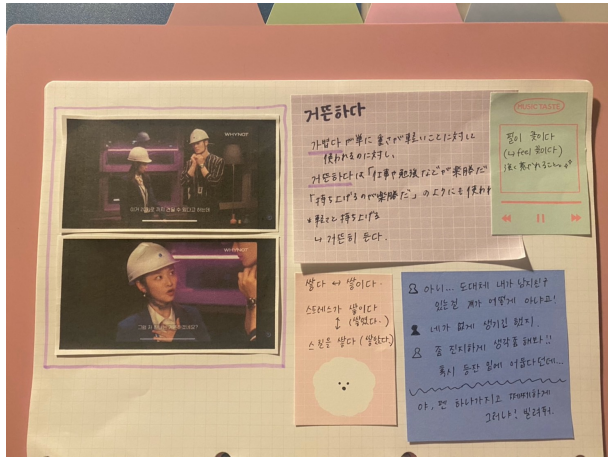 WHYNOT
WHYNOT
거뜬하다
가볍다 が単に 重さが軽いことに対し
使われるのに対し、
거뜬하다 は「仕事や勉強などが楽勝だ」
「持ち上げるのが楽勝だ」のようにも使われ
軽々と持ち上げる
↳ 거뜬히 든다.
MUSIC TASTE
필이 꽂이다
(↳ feel 꽂이다)
쌀다 ↔ 쌀이다.
스트레스가 쌀이다
↕ (쌀였다.)
스킬을 쌀다 (쌀았다.)
아니... 도대체 내가 남지친구
있는걸 걔가 어떻게 아냐고!
네가 없게 생기긴 했지.
좀 진지하게 생각좀 해봐!!
혹시 등잔 밑에 어둡다던데...
야, 펜 하나가지고 째째하게
그러냐! 빌려줘.